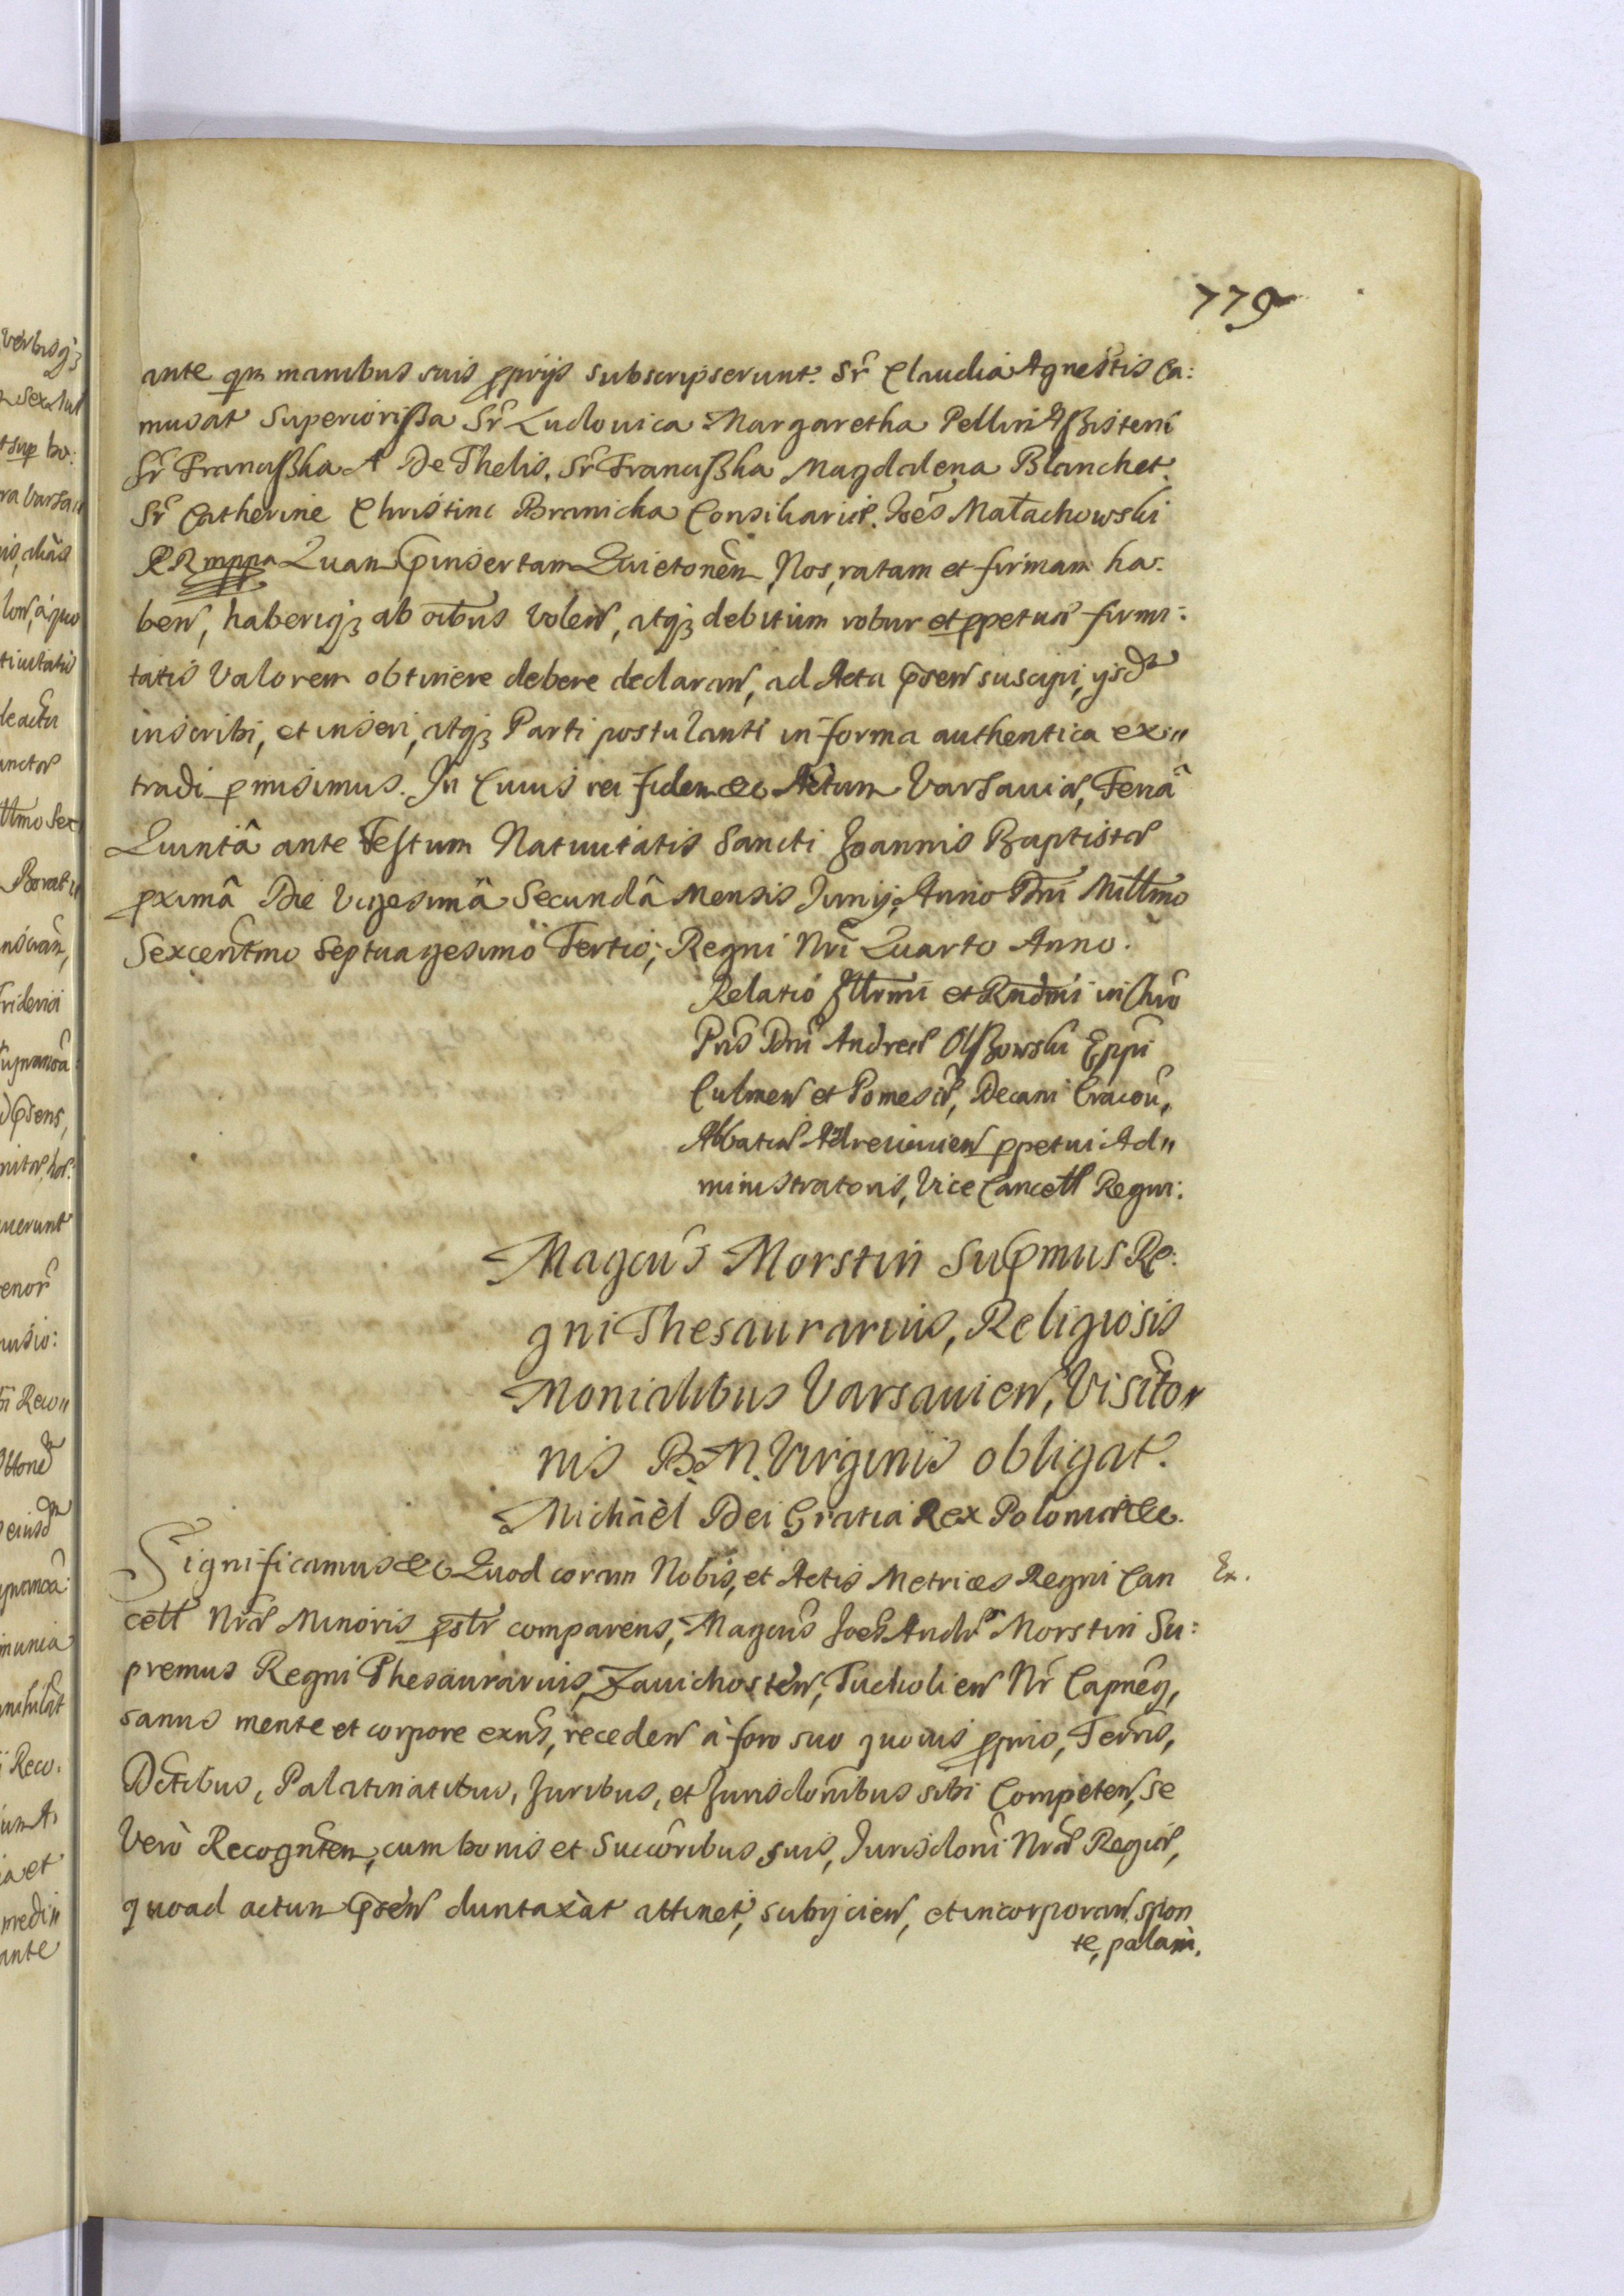 779
ante qm manibus suis pprijs subscripserunt. Sr̃ Claudia Agnestis Ca:
musat Superiorißa Sr̃ Ludouica Margaretha Pellin Aßistens
Sr̃ Francißka A De Thelis. Sr̃ Francißka Magdalena Blanchet.
Sr̃ Catherine Christine Branicka Consiliariæ. Joẽs Małachowski
RR mppa Quam p̃insertam Quietonẽm, Nos, ratam et firmam ha:
beñ, haberiqȝ ab oĩbus voleñ, atqȝ debitum robur et ppetuæ firmi:
tatis valorem obtinere debere declarañ, ad Acta p̃señ suscipi, ijsdẽ
inscribi, et inseri, atqȝ Parti postulanti in forma authentica ex„
tradi pmisimus. In Cuius rei fidem &c Actum Varsauiæ, Feriâ
Quintâ ante Festum Natiuitatis Sancti Joannis Baptistæ
pximâ Die Vigesimâ Secundâ Mensis Junij, Anno Dnĩ Millmo
Sexcentmo Septuagesimo Tertio, Regni Nrĩ Quarto Anno.
Relatio Illrmi et Rndmi in Chrõ
Pris Dnĩ Andreæ Olßowski Eppĩ
Culmeñ et Pomesæ, Decani Cracoũ,
Abbatiæ Adreiouieñ ppetui Ad„
ministratoris, Vice Cancell Regni:
Magcũs Morstin Sup̃mus Re:
gni Thesaurarius, Religiosis
Monialibus Varsauieñ, Visitõ„
nis B. M. Virginis obligat.
Michäel Dei Gratia Rex Poloniæ &c.
Significamus &c Quod coram Nobis, et Actis Metrices Regni Can
Ex.
cell Nræ Minoris pstr comparens, Magcũs Joẽs Andr̃ Morstin Su:
premus Regni Thesaurarius, Zauichosteñ, Tucholieñ Nr̃ Capneũ,
sanus mente et corpore exñs, recedeñ à foro suo quouis pprio, Terris,
Dctibus, Palatinatibus, Juribus, et Jurisdonibus sibi Competeñ, se
verò Recognten, cum bonis et Succoribus suis, Jurisdoni Nræ Regiæ,
quoad actum p̃señ duntaxàt attinet, subijcieñ, et incorporañ, spon
te, palam,